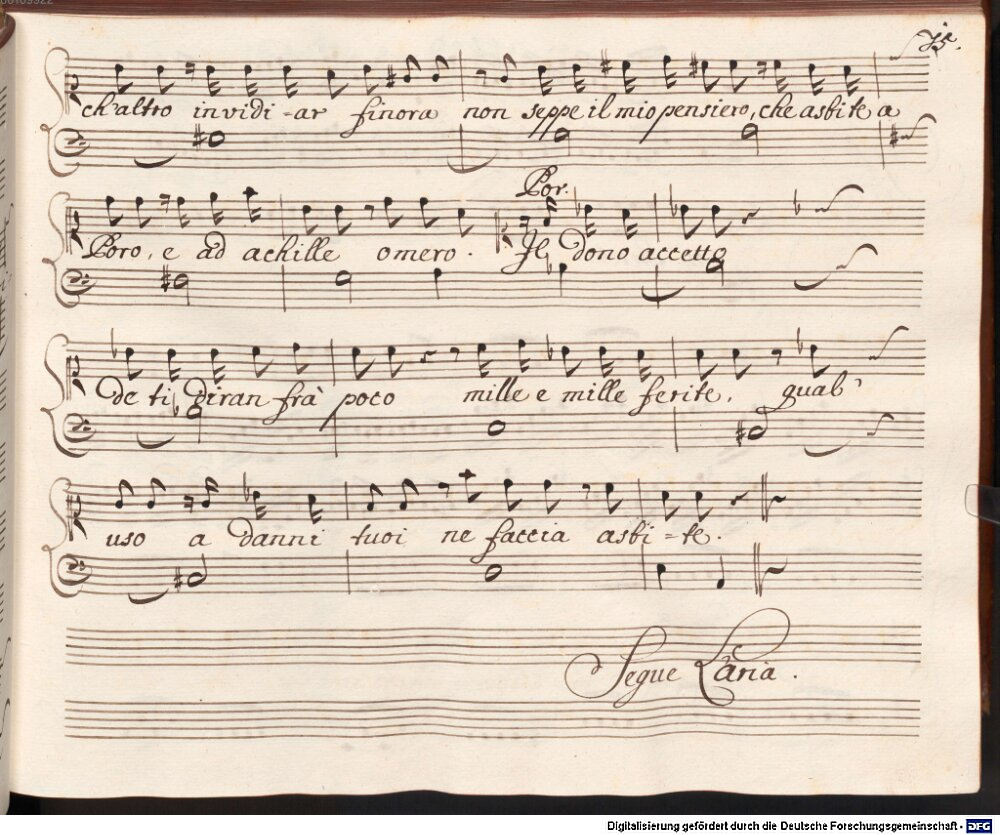 ch'altro invidi-ar finora non seppe il mio pensiero, che asbite a
Por.
Poro, e ad achille omero. Il dono accetto
de ti diran frà poco mille e mille ferite, qual'
uso a danni tuoi ne faccia asbi=te.
Segue L'aria.
Digitalisierung gefördert durch die Deutsche Forschungsgemeinschaft - DFG